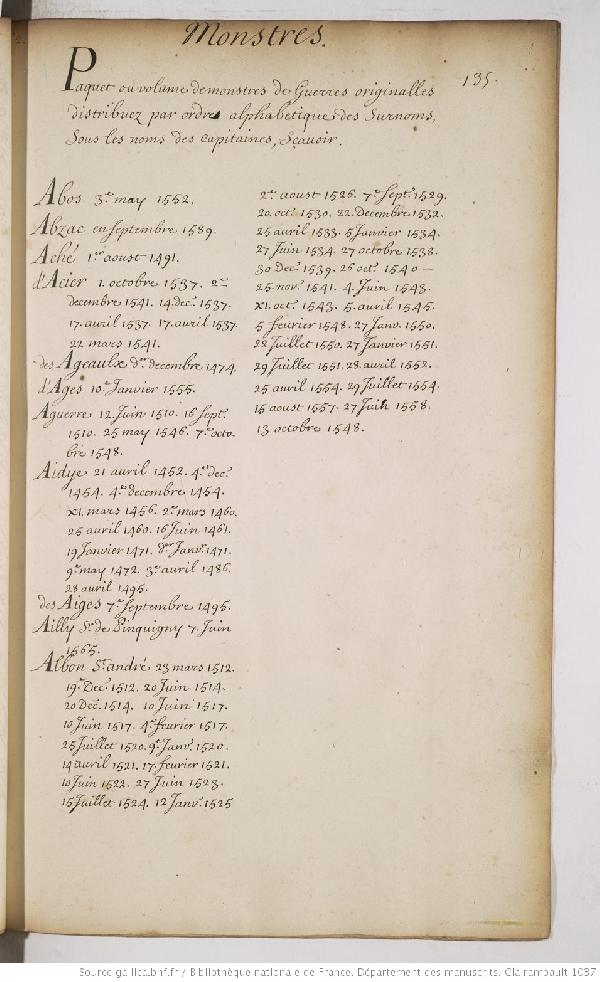 Monstres.
135.
Paquet ou volume de monstres de Guerres originalles
distribuez par ordre alphabetique des Surnoms,
Sous les noms des Capitaines, Sçavoir.
Abos 3.e may 1552.
Abzac en septembre 1589.
Aché 1.er aoust 1491.
d'Acier 1. octobre 1537. 2.me
decembre 1541. 14. dec.e 1537.
17. avril 1537. 17. avril 1537.
22 mars 1541.
des Ageaulx d.er decembre 1474.
d'Ages 10.e Janvier 1555.
Aguerre 12 Juin 1510. 16 Sept.e
1510. 25 may 1546. 7.e octo-
bre 1548.
Aidye 21 avril 1452. 4.e dec.e
1454. 4.e decembre 1454.
XI. mars 1456. 2.e mars 1460.
25 avril 1460. 16 Juin 1461.
19 Janvier 1471. d.er Janv.r 1471.
9.e may 1472. 3.e avril 1486.
28 avril 1495.
des Aiges 7.e Septembre 1495.
Ailly S.r de Pinquigny 7. Juin
1565.
Albon S.t andré 23 mars 1512.
19.e Dec.e 1512. 20 Juin 1514.
20 Dec.e 1514. 10 Juin 1517.
10 Juin 1517. 4.e fevrier 1517.
25 Juillet 1520. 9.e Janv.r 1520.
14 avril 1521. 17. fevrier 1521.
10 Juin 1522. 27 Juin 1523.
15 Juillet 1524. 12 Janv.r 1525
2.e aoust 1526. 7.e Sept.e 1529.
20. oct.e 1530. 22. Decembre 1532.
25 avril 1533. 5 Janvier 1534.
27 Juin 1534. 27 octobre 1538.
30 Dec.e 1539. 26 oct.e 1540 —
25. nov.e 1541. 4. Juin 1543.
XI. oct.e 1543. 5. avril 1545.
5 fevrier 1548. 27 Janv. 1550.
22 Juillet 1550. 27 Janvier 1551.
29 Juillet 1551. 28. avril 1552.
25 avril 1554. 29 Juillet 1554.
15 aoust 1557. 27 Juin 1558.
13 octobre 1548.
Source gallica.bnf.fr / Bibliothèque nationale de France. Département des manuscrits. Clairambault 1037